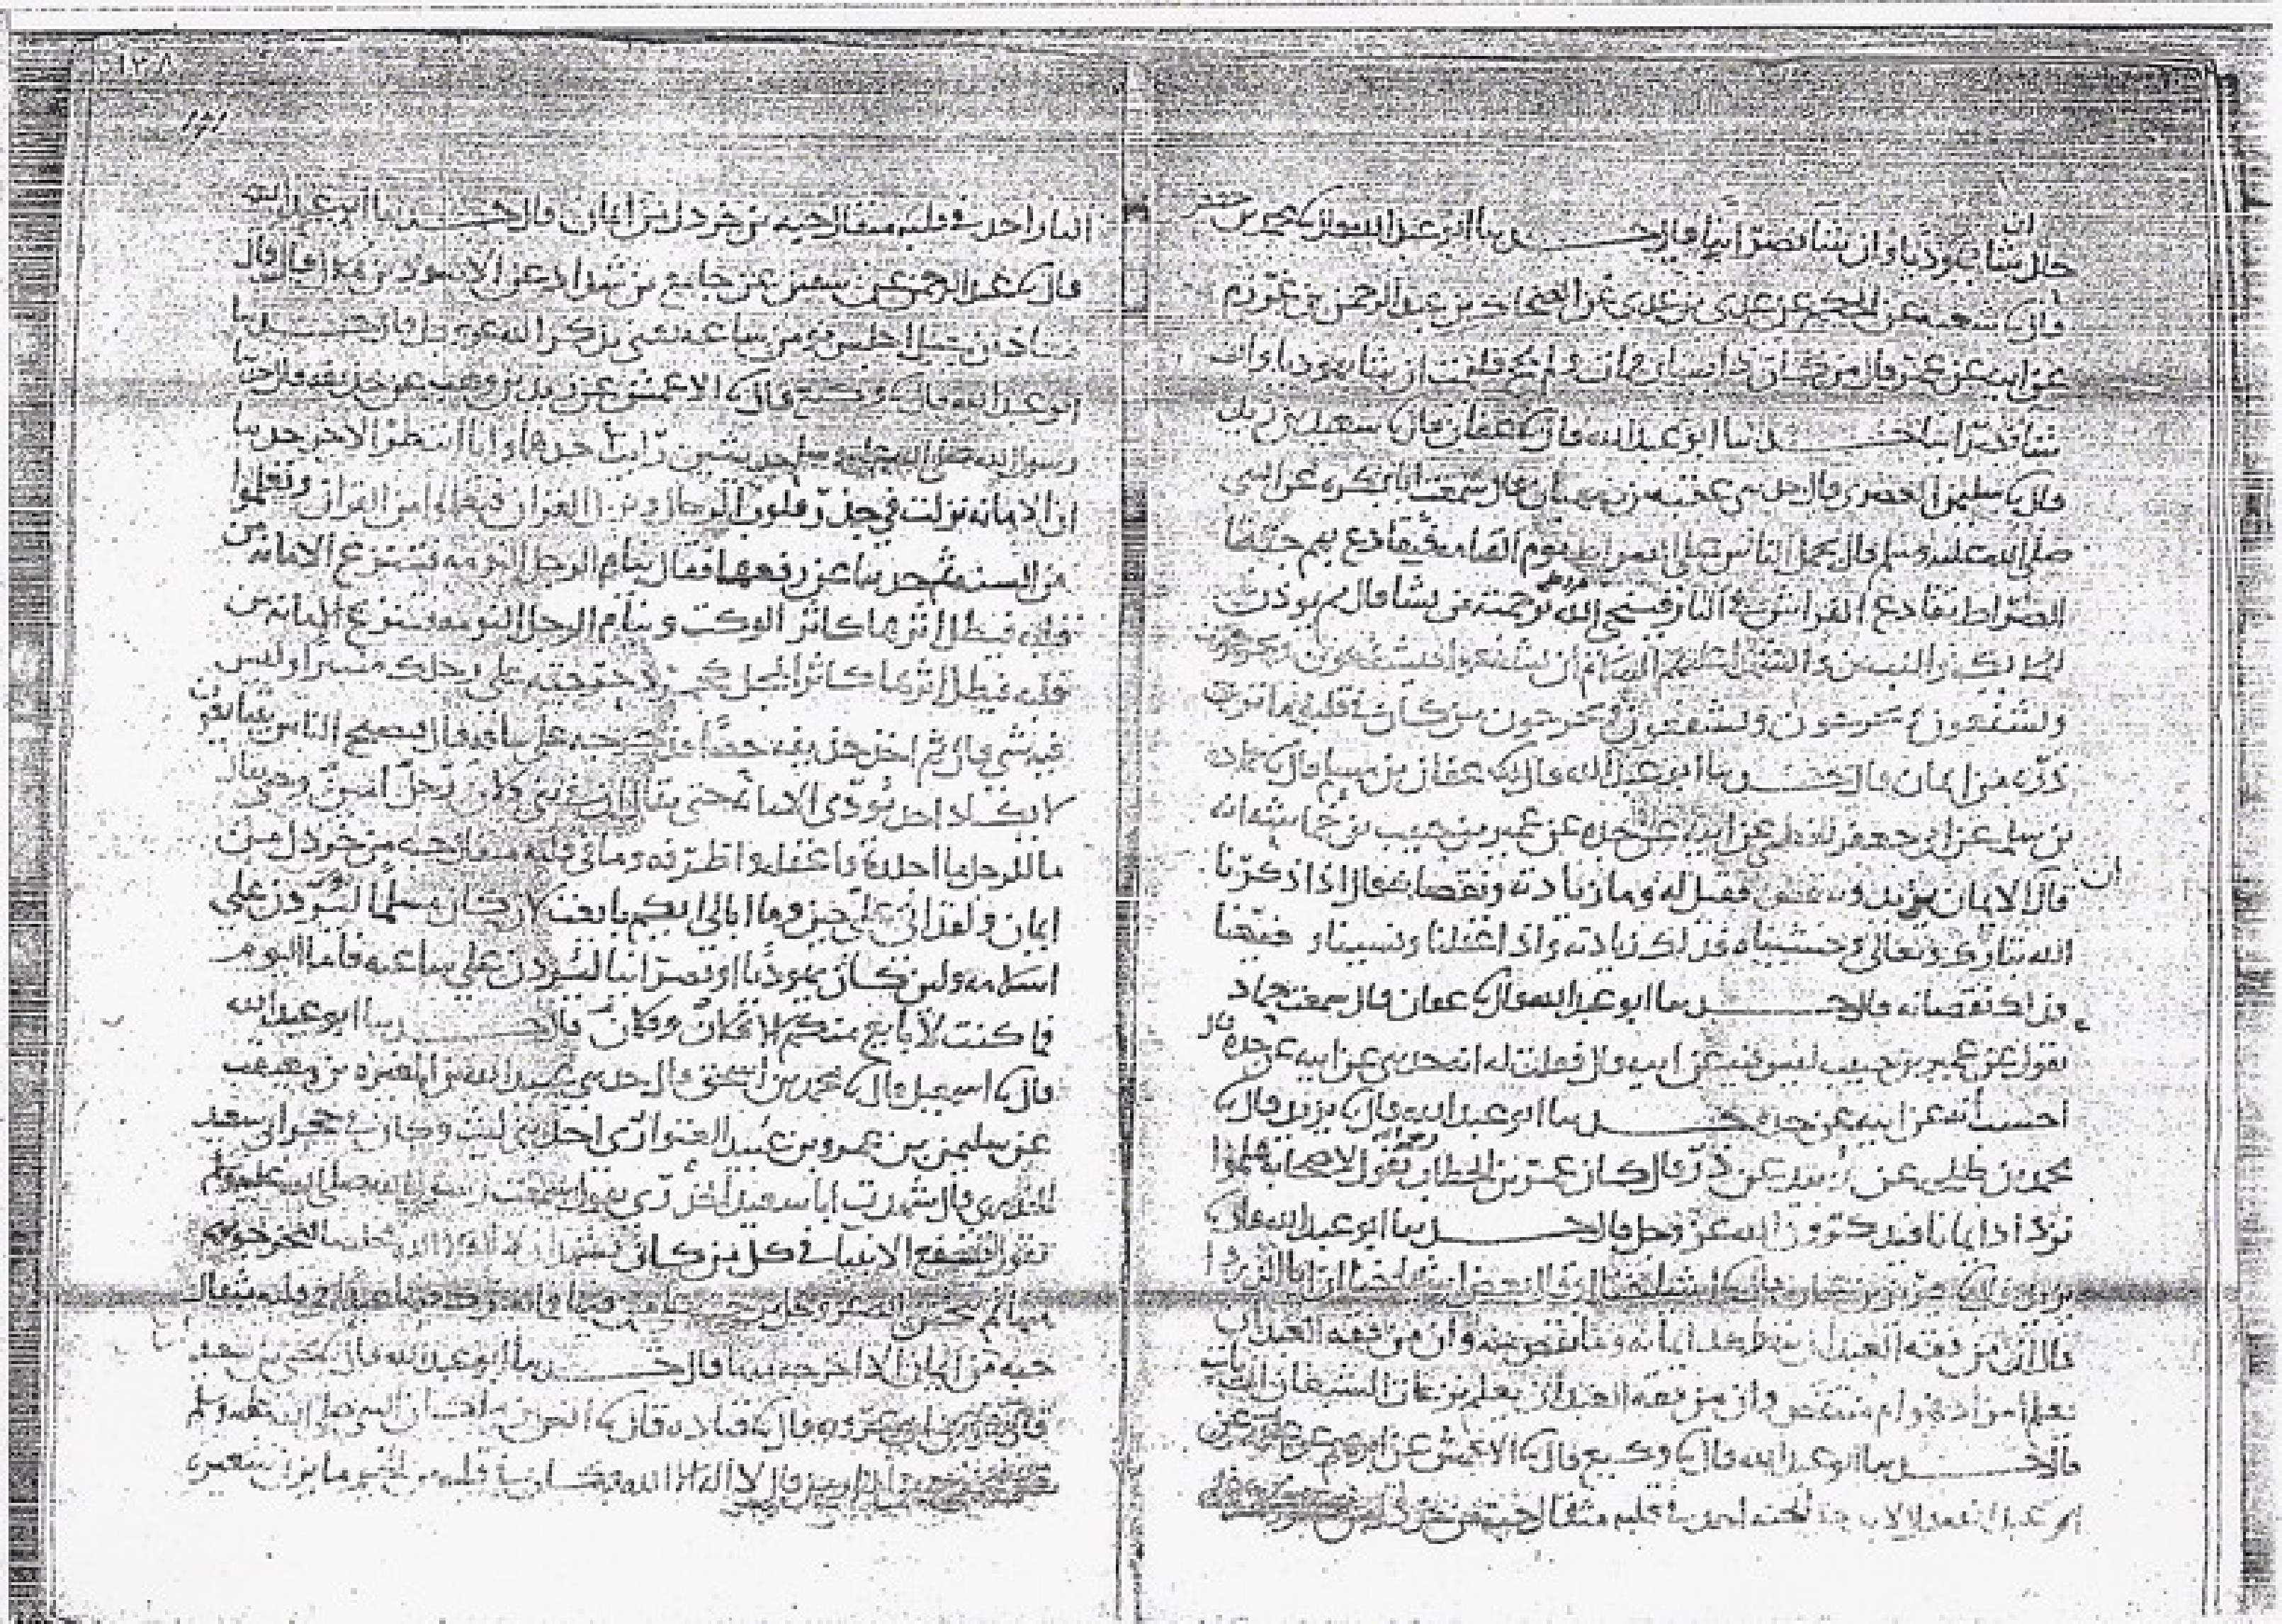 ان
حال شا يهوديا وان شا نصرانيا قال حدثنا ابو عبد الله قال محمد بن جعفر
قال شعبه عن الحكم عن عدي بن عدي عن الضحاك بن عبد الرحمن بن عرزم
عن ابيه عن عمر قال من كان ذا يسار فمات ولم يحج فليمت ان شا يهوديا وان
شا نصرانيا حدثنا ابو عبد الله قال عفان قال سعيد بن زيد
قال سليمن الحضري قال حدثني عقبه بن صهبان قال سمعت ابا بكره عن النبي
صلى الله عليه وسلم قال يحمل الناس على الصراط يوم القيامه فيتقادع بهم جنبتا
الصراط تقادع الفراش في النار فينجي الله برحمته من يشا قال ثم يوذن
للملايكه والنبيين والشهدا عليهم السلام ان يشفعوا فيشفعون ويخرجون
ويشفعون ويخرجون ويشفعون ويخرجون من كان في قلبه ما يزن
ذره من ايمان قال حدثنا ابو عبد الله قال عفان بن مسلم قال حماد
بن سلمه عن ابي جعفر الخطمي عن ابيه عن جده عن عمير بن حبيب بن خماشه انه
قال الايمان يزيد وينقص فقيل له وما زيادته ونقصانه قال اذا ذكرنا
ان
الله تبارك وتعالى وخشيناه فذلك زيادته واذا غفلنا ونسينا وضيعنا
فذلك نقصانه قال حدثنا ابو عبد الله قال عفان قال سمعت حماد
يقول عن عمير بن حبيب ليس فيه عن ابيه قال فقلت له انه حدثني عن ابيه عن جده قال
احسب انه عن ابيه عن جده حدثنا ابو عبد الله قال يزيد قال
محمد بن طلحه عن زبيد عن ذر قال كان عمر بن الخطاب يقول لاصحابه هلموا
نزداد ايمانا فيذكرون الله عز وجل قال حدثنا ابو عبد الله قال
يزيد قال حريز بن عثمان قال اشياخنا او قال بعض اشياخنا ان ابا الدردا
قال ان من فقه العبد ان يعلم ايمانه وما نقص منه وان من فقه العبد ان
يعلم امزداد هو ام منتقص وان من فقه العبد ان يعلم نزغات الشيطان اني تاتيه
قال حدثنا ابو عبد الله قال وكيع قال الاعمش عن ابرهيم عن علقمه عن
لا يدخل الجنه احد في قلبه مثقال حبه من خردل
١٣٨
النار احد في قلبه مثقال حبه من خردل من ايمان قال حدثنا ابو عبد الله
قال عبد الرحمن عن سفين عن جامع بن شداد عن الاسود بن هلال قال قال
معاذ بن جبل اجلس نومن ساعه نذكر الله عز وجل قال حدثنا
ابو عبد الله قال وكيع قال الاعمش عن زيد بن وهب عن حذيفه قال حدثنا
رسول الله صلى الله عليه وسلم حديثين رايت احدهما وانا انتظر الاخر حدثنا
ان الامانه نزلت في جذر قلوب الرجال ونزل القران فتعلموا من القران وتعلموا
من السنه ثم حدثنا عن رفعها فقال ينام الرجل النومه فتنزع الامانه من
قلبه فيظل اثرها كاثر الوكت وينام الرجل النومه فتنزع الامانه من
قلبه فيظل اثرها كاثر المجل كجمر دحرجته على رجلك منتبرا وليس
فيه شي قال ثم اخذ حذيفه حصا فدحرجه على ساقه قال فيصبح الناس يتبايعون
لا يكاد احد يودي الامانه حتى يقال ان في بني فلان رجل امين وحتى يقال
ما للرجل ما اجلده واعقله واظرفه وما في قلبه مثقال حبه من خردل من
ايمان ولقد اتى علي حين وما ابالي ايكم بايعت لان كان مسلما ليردن علي
اسلامه ولين كان يهوديا او نصرانيا ليردن علي ساعيه فاما اليوم
فما كنت لابايع منكم الا فلان وفلان قال حدثنا ابو عبد الله
قال اسمعيل قال محمد بن اسحق قال حدثني عبيد الله بن المغيره بن معيقب
عن سليمن بن عمرو بن عبيد العتواري احد بني ليث وكان في حجر ابي سعيد
الخدري قال سمعت ابا سعيد الخدري يقول سمعت رسول الله صلى الله عليه وسلم
يقول يشفع الانبيا في كل من كان يشهد ان لا اله الا الله مخلصا فيخرجونهم
منها ثم يتحنن الله عز وجل برحمته على من فيها فما يترك فيها عبدا في قلبه مثقال
حبه من ايمان الا اخرجه منها قال حدثنا ابو عبد الله قال يحيى بن سعيد
قال بن ابي عروبه قال قتاده قال انس بن مالك ان النبي صلى الله عليه وسلم
قال لا اله الا الله وكان في قلبه من الخير ما يزن شعيره